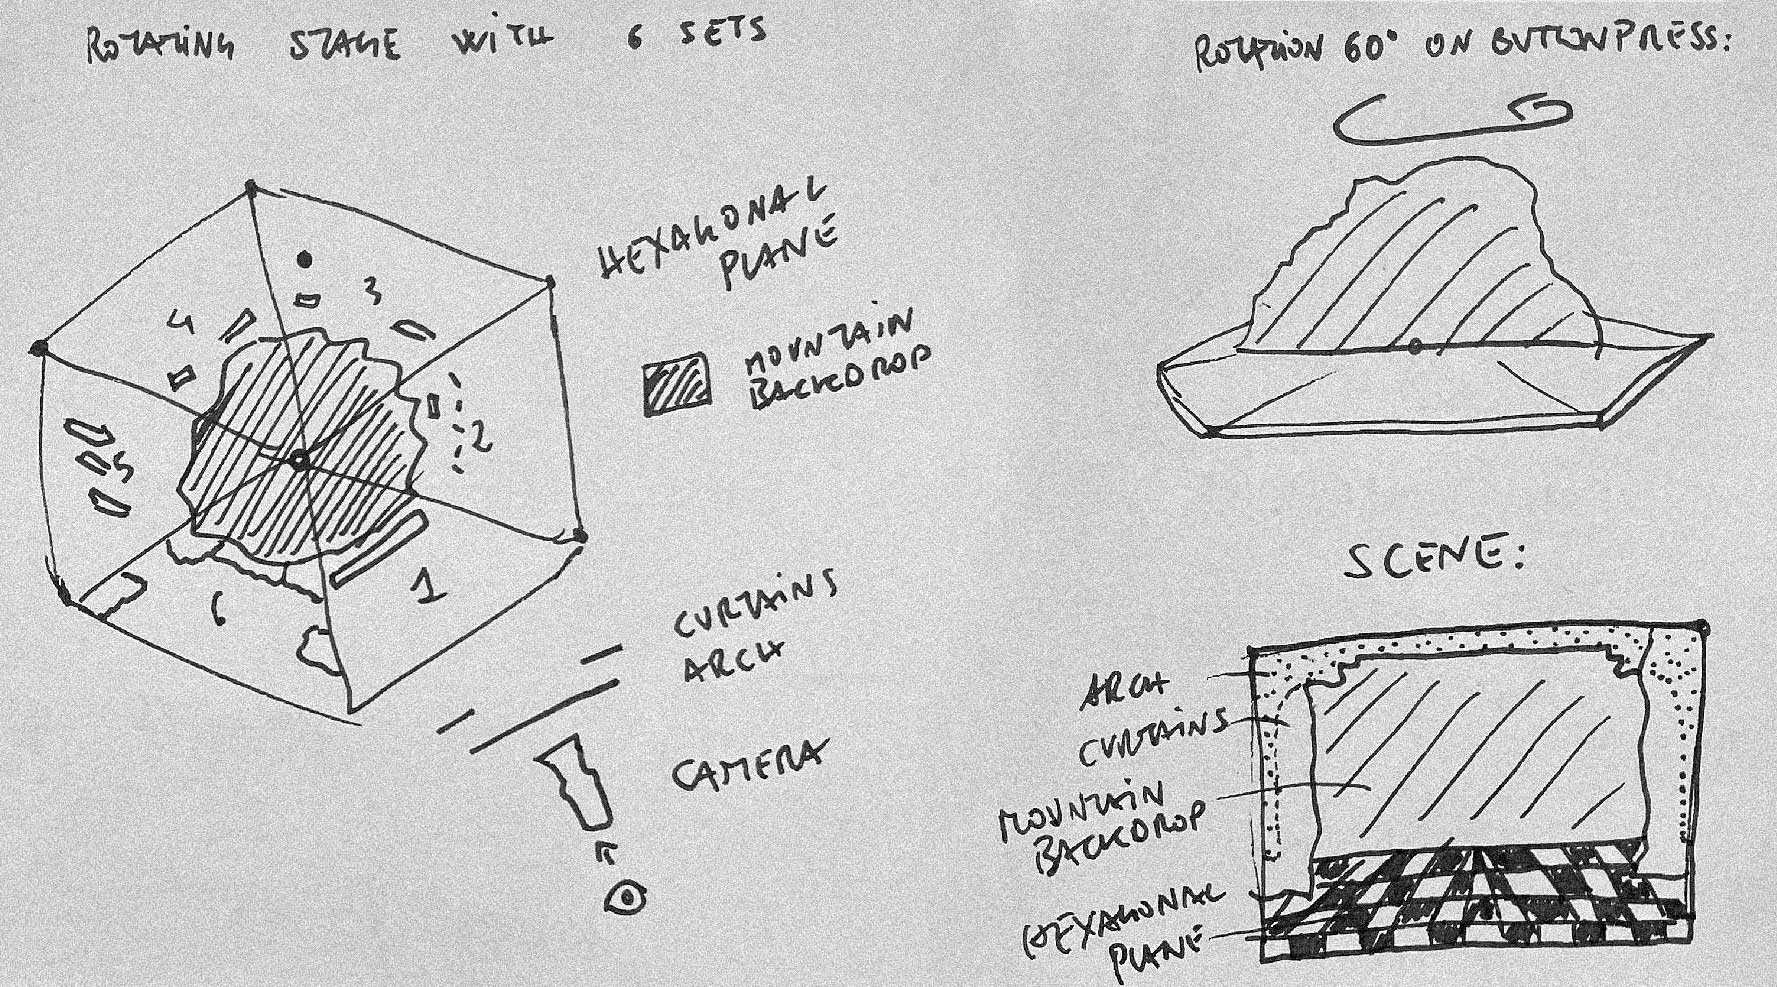 ROTATING STAGE WITH 6 SETS
ROTATION 60° ON BUTTONPRESS:
HEXAGONAL
PLANE
MOUNTAIN
BACKDROP
3
4
2
5
1
6
CURTAINS
ARCH
CAMERA
SCENE:
ARCH
CURTAINS
MOUNTAIN
BACKDROP
HEXAGONAL
PLANE